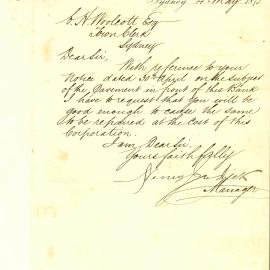 Sydney 4 May 18
C. H. Woolcott Esq
Town Clerk
Sydney
Dear Sir,
With reference to your
Notice dated 30 April on the subject
of the Pavement in front of this Bank
I have to request that you will be
good enough to cause the same
to be repaired at the Cost of this
Corporation.
I am Dear Sir
Yours faithfully
Manager